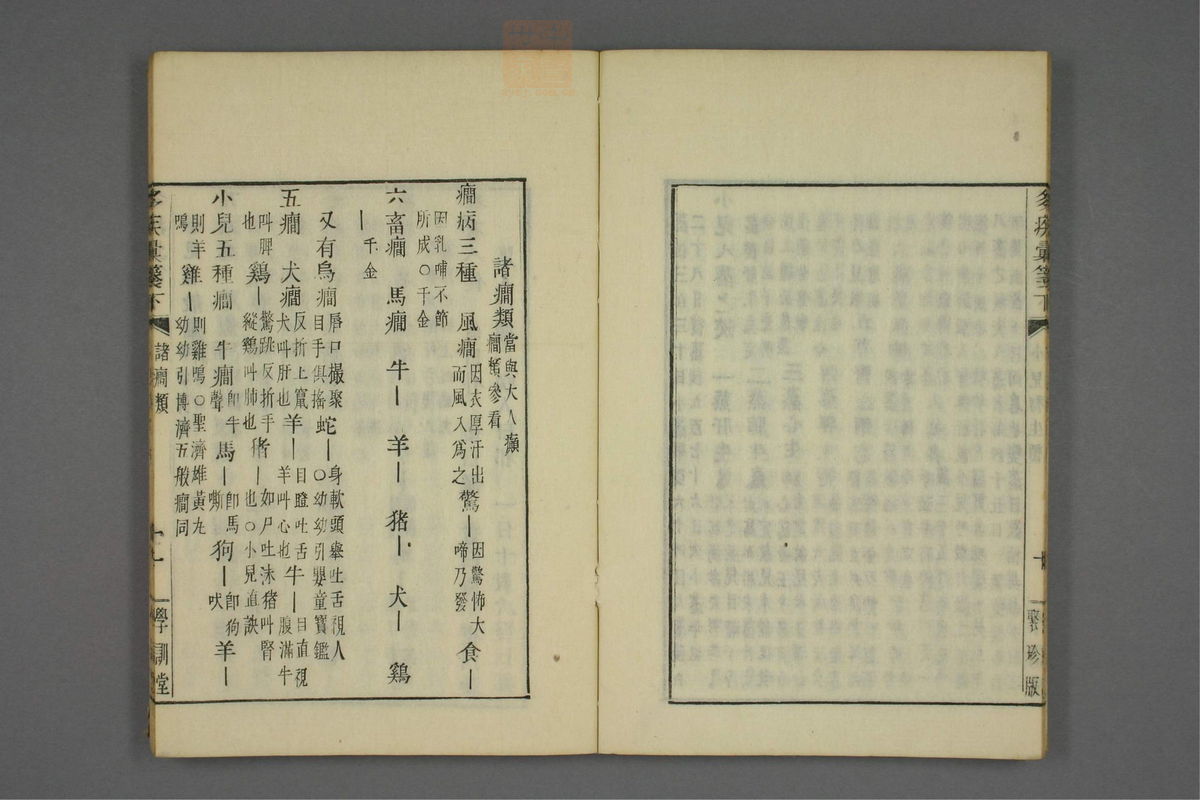 多疾彙箋下
十
聚珍版
諸癇類 當與大人癲
癇類參看
癇病三種 風癇 因衣厚汗出
而風入爲之 驚— 因驚怖大
啼乃發 食—
因乳哺不節
所成○千金
六畜癇 馬癇 牛— 羊— 猪— 犬— 鷄
— 千金
又有烏癇 唇口撮聚
目手俱搖 蛇— 身軟頭擧吐舌視人
○幼幼引嬰童寶鑑
五癇 犬癇 反折上竄
犬叫肝也 羊— 目瞪吐舌
羊叫心也 牛— 目直視
腹滿牛
叫脾
也 鷄— 驚跳反折手
縱鷄叫肺也 猪— 如尸吐沫猪叫腎
也○小兒直訣
小兒五種癇 牛癇 卽牛
聲 馬— 卽馬
嘶 狗— 卽狗
吠 羊—
則羊
鳴 雞— 則雞鳴○聖濟雄黃丸
幼幼引博濟五般癇同
多疾彙箋下
諸癇類
十一
學訓堂